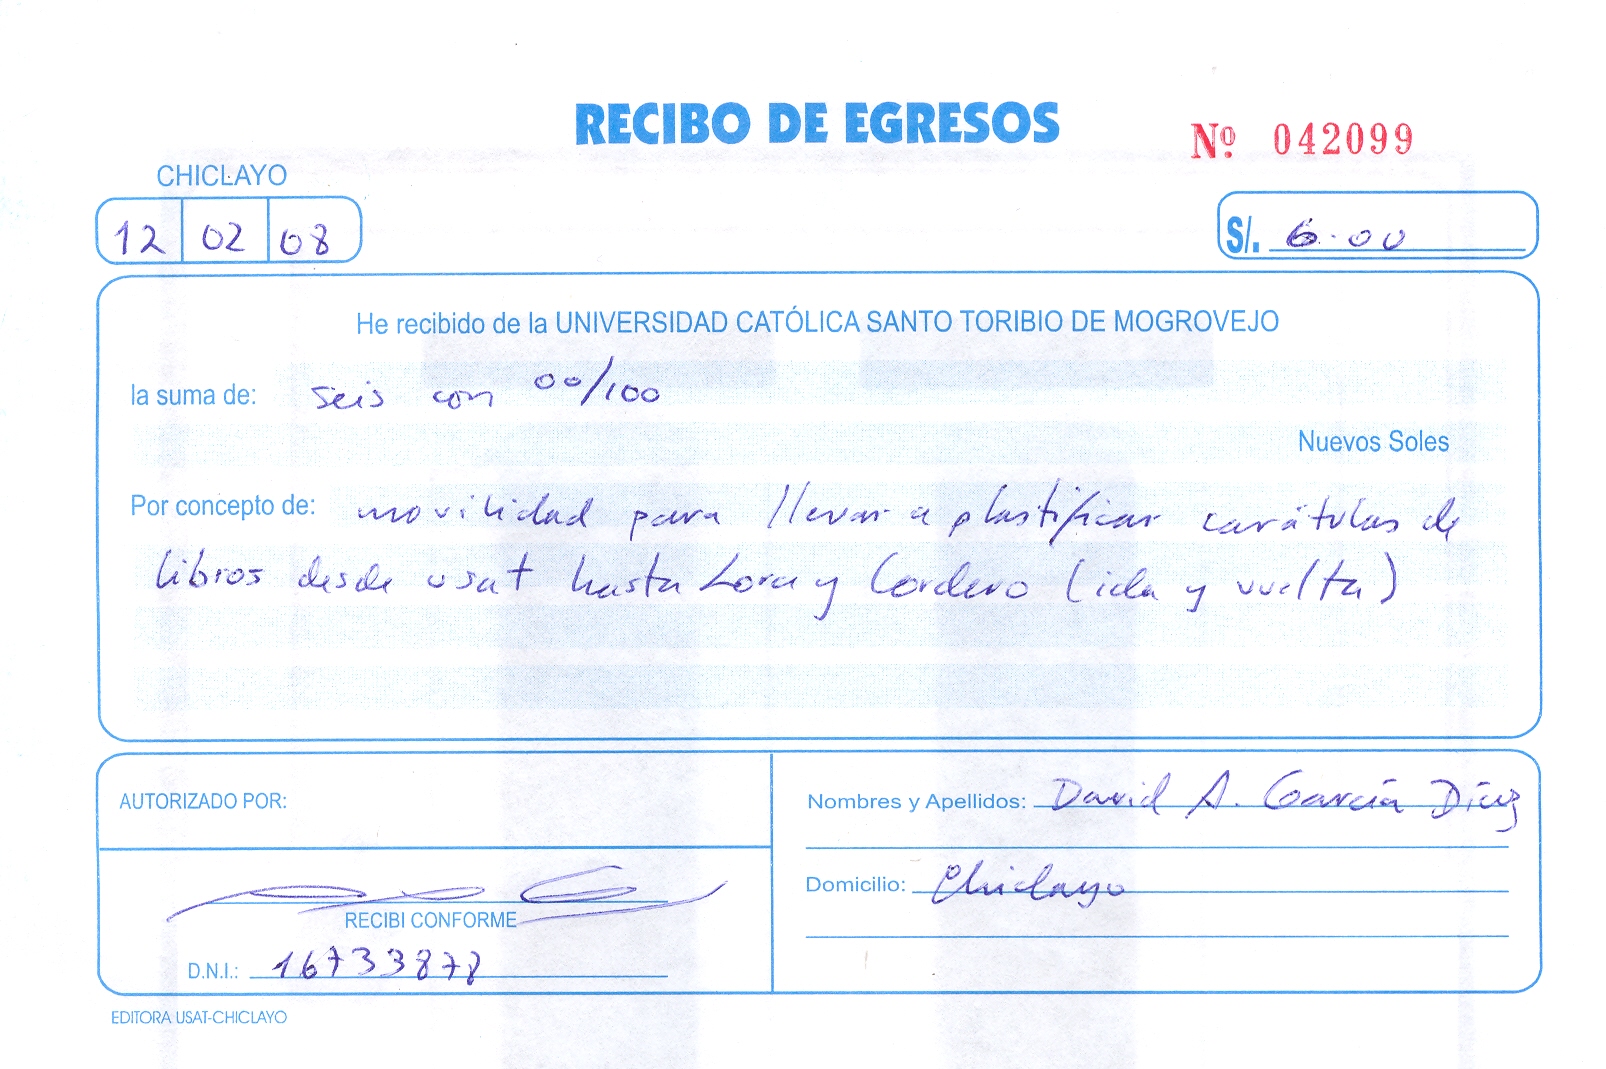 RECIBO DE EGRESOS
Nº 042099
CHICLAYO
12 02 08
S/. 6.00
He recibido de la UNIVERSIDAD CATÓLICA SANTO TORIBIO DE MOGROVEJO
la suma de: seis con 00/100
Nuevos Soles
Por concepto de: movilidad para llevar a plastificar carátulas de
libros desde usat hasta Lora y Cordero (ida y vuelta)
AUTORIZADO POR:
Nombres y Apellidos: David A. García Díaz
Domicilio: Chiclayo
RECIBI CONFORME
D.N.I.: 16733878
EDITORA USAT-CHICLAYO